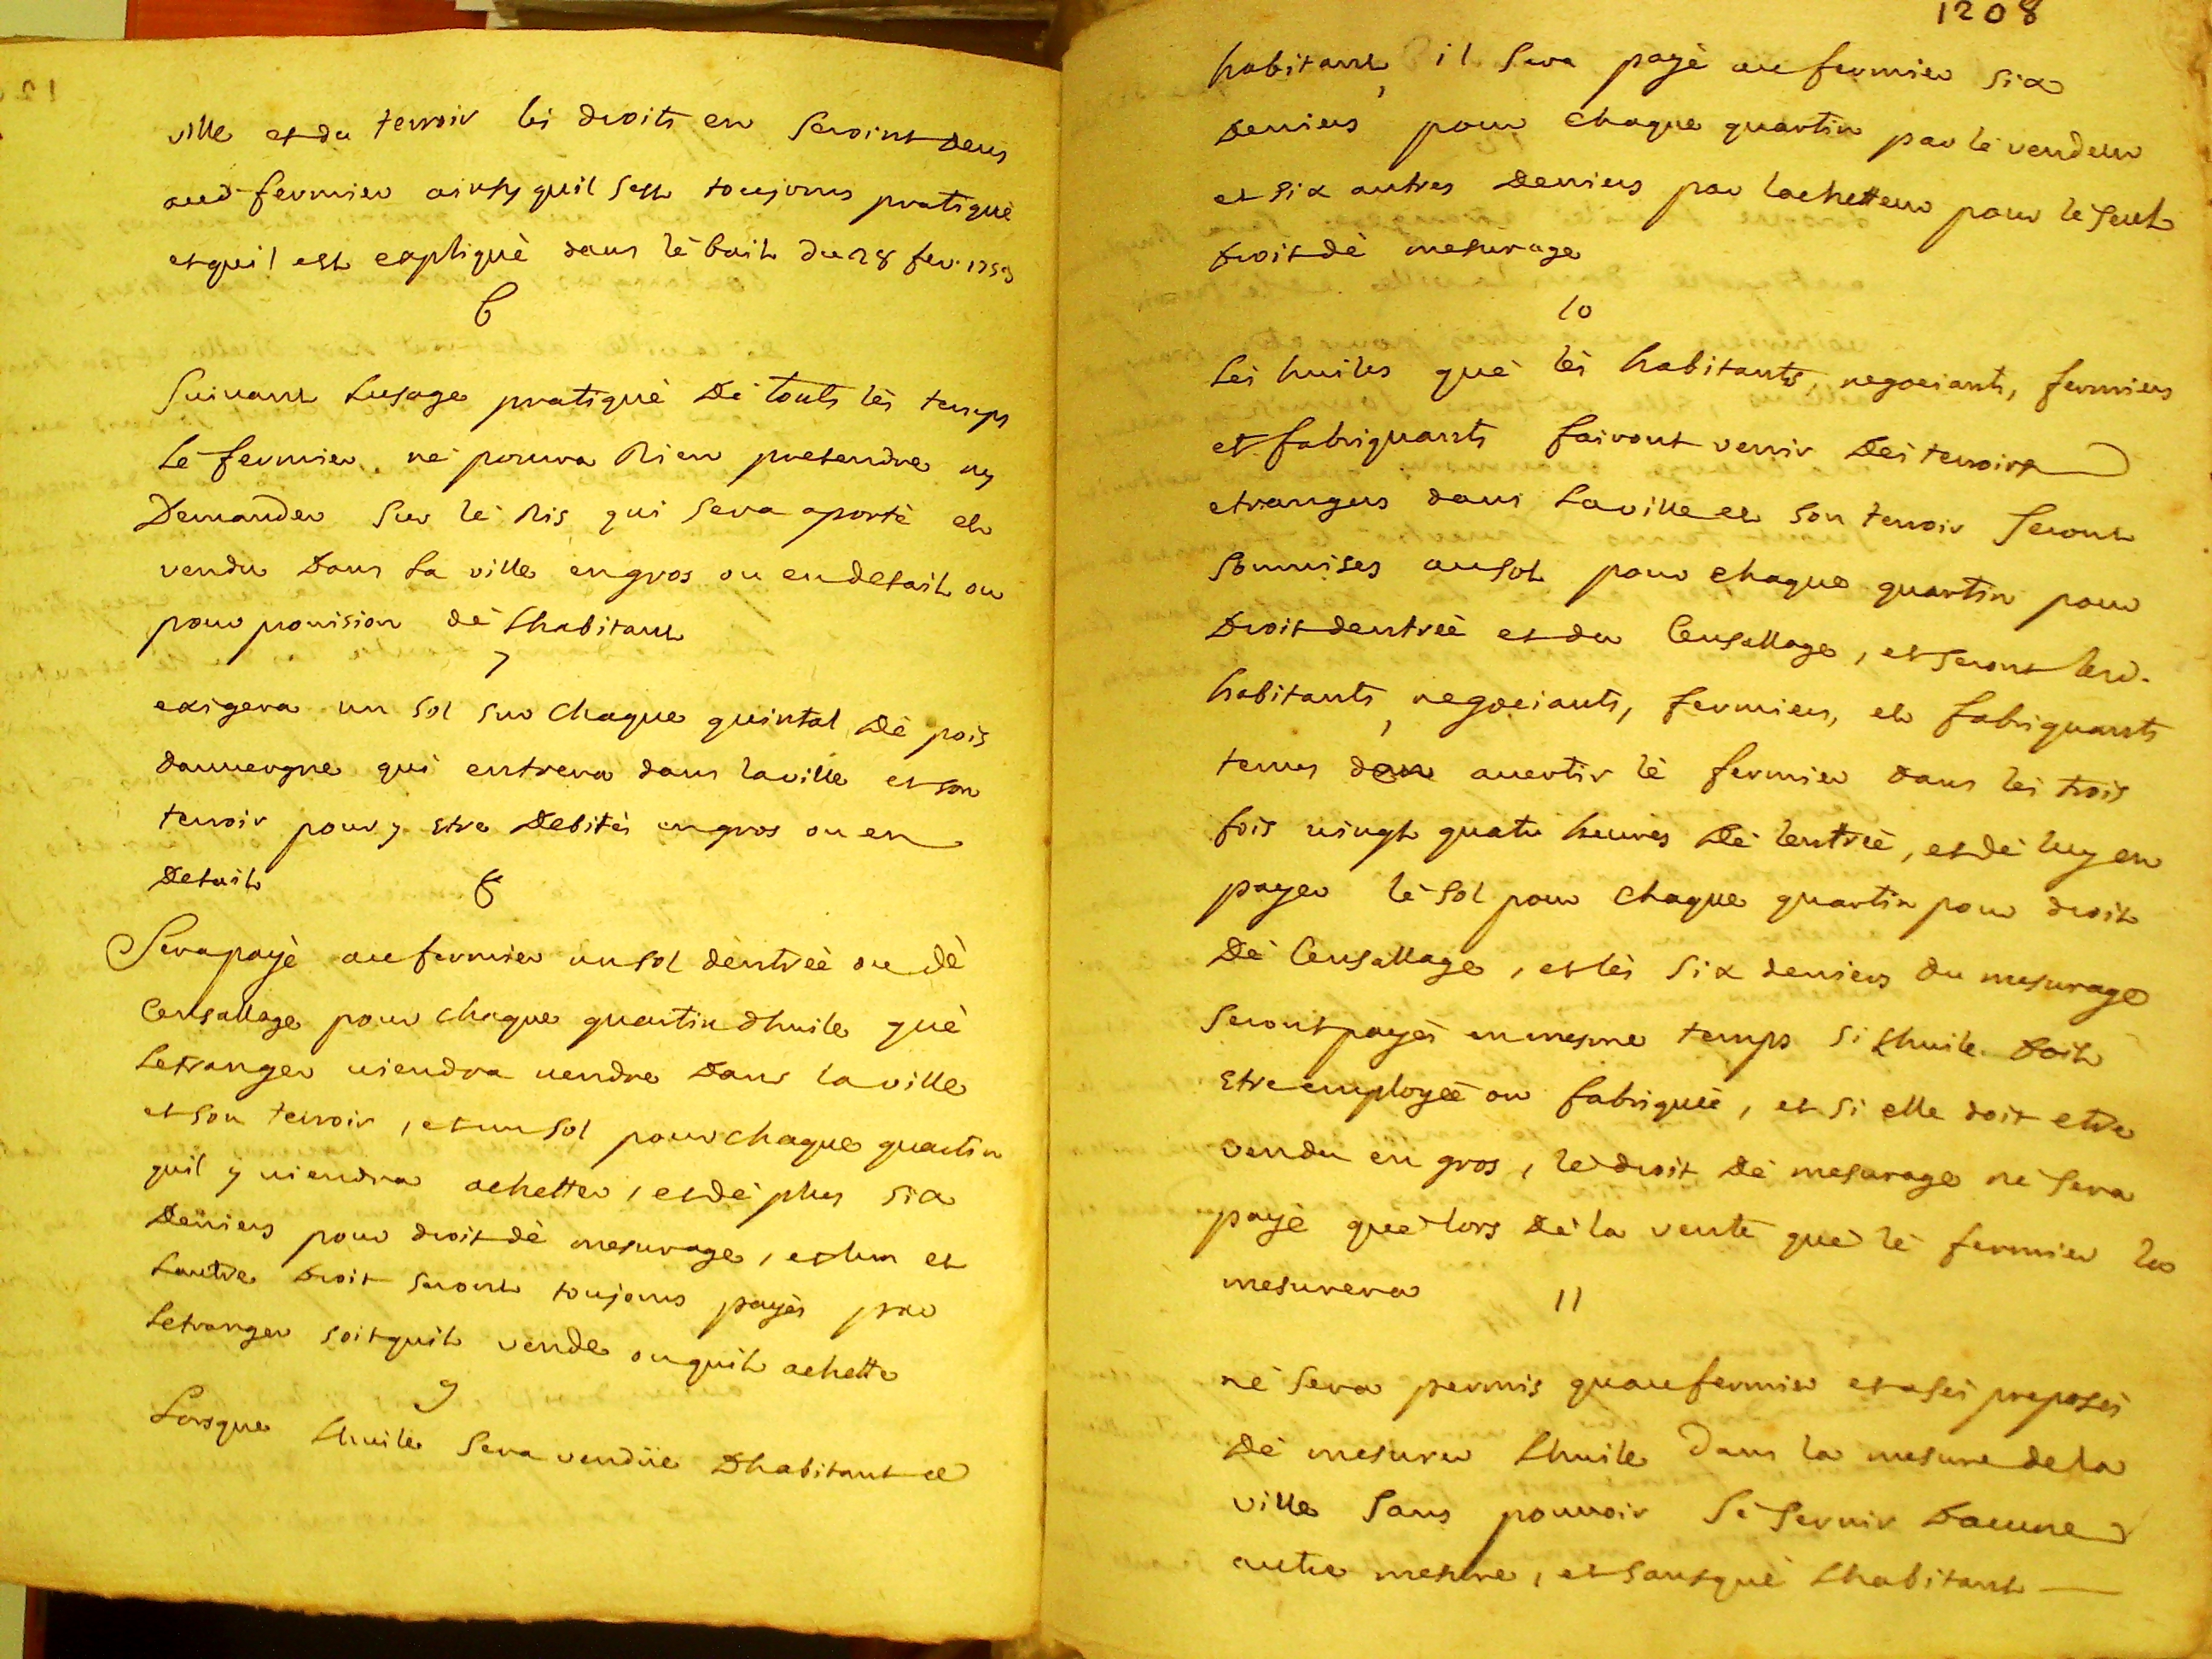 ville et du terroir les droits en seroint deus
aud fermier ainsy quil sest toujours pratiqué
et quil est expliqué dans lé bail du 28 fev. 1753
6
Suivant Lusage pratiqué Dé touts lés temps
Le fermier né pourra Rien pretendre ny
Demander sur lé Ris qui sera aporté et
vendu Dans La ville en gros ou en detail ou
pour provision dé Lhabitant
7
exigera un sol sur chaque quintal Dé pois
dauvergne qui entrera dans la ville et son
terroir pour y estre Debités en gros ou en
Detail
8
Sera payé au fermier un sol déntréé ou dé
Censallage pour chaque quartin dhuile qué
Letranger viendra vendre Dans la ville
et son terroir, et un sol pour chaque quartin
quil y viendra achetter, et dé plus six
Deniers pour droit dé mesurage, et lun et
Lautre Droit seront toujours payés par
Letranger soit quil vende ou quil achette
9
Lorsque Lhuile Sera vendüe Dhabitant a
1208
habitant, il Sera payé au fermier six
Deniers pour chaque quartin par lé vendeur
et six autres Deniers par lachetteur pour lé seul
Droit dé mesurage
10
Les huiles qué lés habitants, negociants, fermiers
et fabriquants fairont venir Des terroirs
etrangers dans La ville et son terroir Seront
Soumises au sol pour chaque quartin pour
Droit dentréé et du Censallage, et seront lesd.
habitants, negociants, fermiers, et fabriquants
tenus den avertir lé fermier Dans les trois
fois vingt quatre heures Dé lentréé, et dé luy en
payer lé sol pour chaque quartin pour droit
Dé Censallage, et lés six deniers du mesurage
Seront payés en mesme temps si Lhuile Doit
estre employéé ou fabriquéé, et si elle doit etre
vendu en gros, lé droit Dé mesurage né Sera
payé qué lors Dé la vente qué lé fermier la
mesurera
11
né Sera permis quau fermier et a sés preposés
Dé mesurer Lhuile Dans la mesure de la
ville Sans pouvoir Sé Servir Daucune
autre mesure, et sans qué Lhabitant